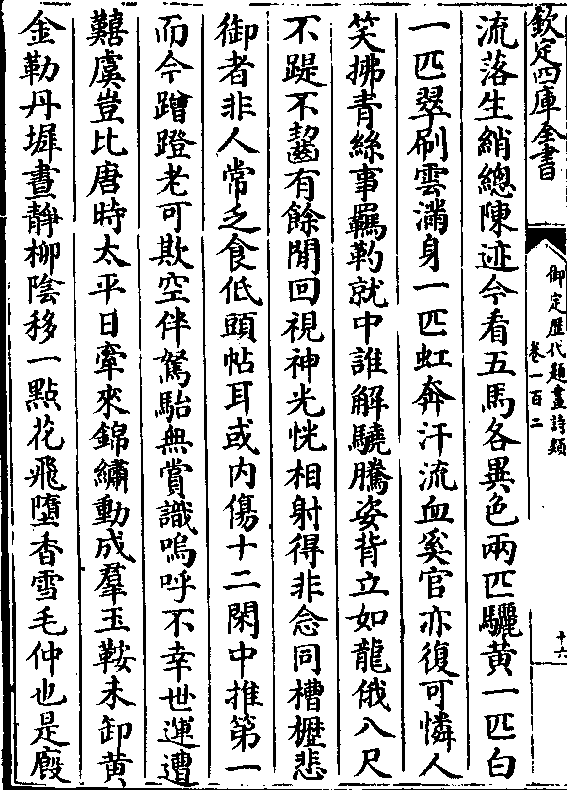 欽定四庫全書
御定歷代題畫詩類
卷一百二
十六
流落生綃總陳迹今看五馬各異色兩匹驪黃一匹白
一匹翠刷雲滿身一匹虹奔汗流血奚官亦復可憐人
笑拂青絲事羈靮就中誰解驍騰姿背立如龍俄八尺
不踶不齧有餘閒回視神光恍相射得非念同槽櫪悲
御者非人常乏食低頭帖耳或内傷十二閑中推第一
而今蹭蹬老可欺空伴駑駘無賞識嗚呼不幸世運遭
囏虞豈比唐時太平日牽來錦繡動成羣玉鞍未卸黄
金勒丹墀晝静柳陰移一點花飛墮香雪毛仲也是廄